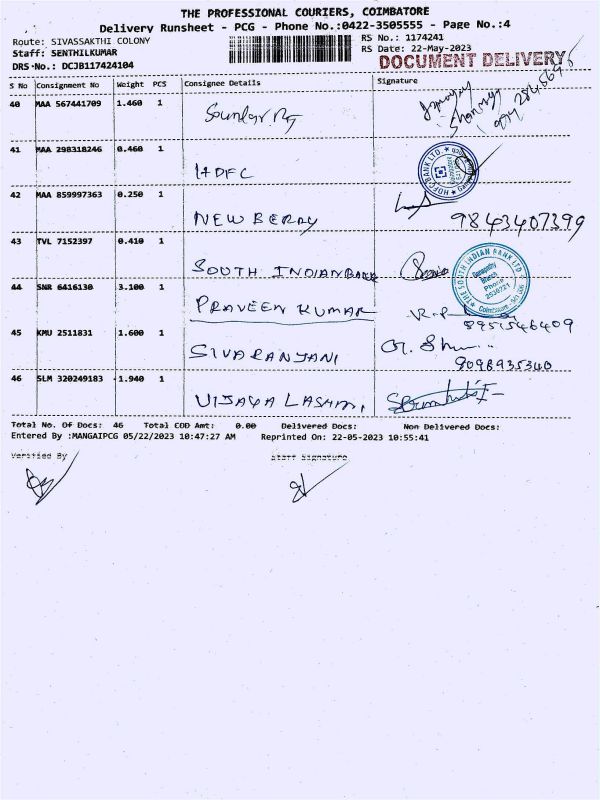 THE PROFESSIONAL COURIERS, COIMBATORE
Delivery Runsheet - PCG - Phone No.:0422-3505555 - Page No.:4
Route: SIVASSAKTHI COLONY
RS No.: 1174241
Staff: SENTHILKUMAR
RS Date: 22-May-2023
DRS-No.: DCJB117424104
DOCUMENT DELIVERY
S No Consignment No Weight PCS Consignee Details Signature
40 MAA 567441709 1.460 1
41 MAA 298318246 0.460 1
HDFC
HDFC BANK LTD.
42 MAA 859997363 0.250 1
NEW BERRY 9843407399
43 TVL 7152397 0.410 1
SOUTH INDIAN BANK
THE SOUTH INDIAN BANK LTD
Ganapathy
Branch
Phone
2536721
Coimbatore
44 SNR 6416130 3.100 1
PRAVEEN KUMAR
8951546409
45 KMU 2511831 1.600 1
SIVARANJANI
9098935340
46 SLM 320249183 1.940 1
VIJAYA LASHMI
Total No. Of Docs: 46 Total COD Amt: 0.00 Delivered Docs: Non Delivered Docs:
Entered By :MANGAIPCG 05/22/2023 10:47:27 AM Reprinted On: 22-05-2023 10:55:41
Verified By Staff Signature